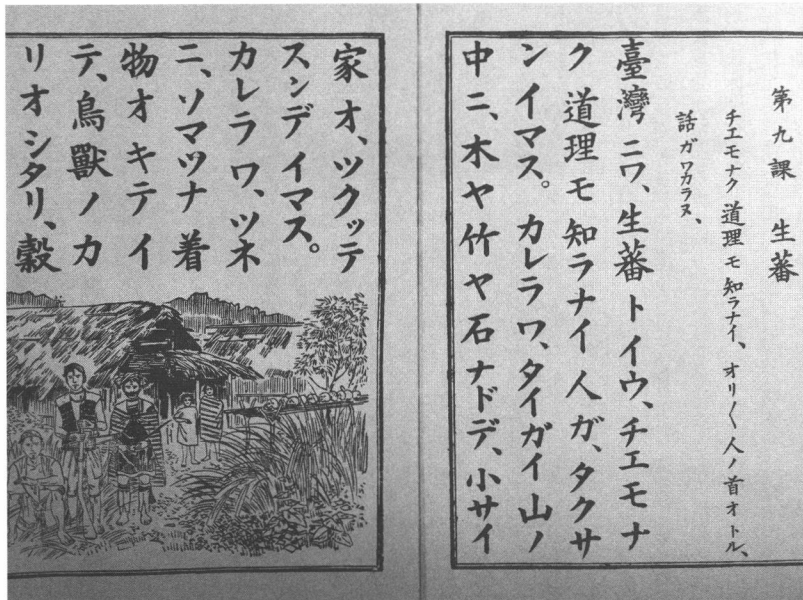 第九課 生蕃
チエモナク 道理 モ 知ラナイ、オリ〱 人ノ 首 オトル、
話 ガワカラヌ、
臺灣 ニワ、生蕃 トイウ、チエモナ
ク 道理 モ 知ラナイ 人 ガ、タクサ
ン イマス。 カレラ ワ、タイガイ 山 ノ
中 ニ、木 ヤ 竹 ヤ 石 ナドデ、小サイ
家 オ、ツクッテ
スンデ イマス。
カレラ ワ、ツネ
ニ、ソマツナ 着
物 オ キテ イ
テ、鳥獸 ノ カ
リ オ シタリ、穀